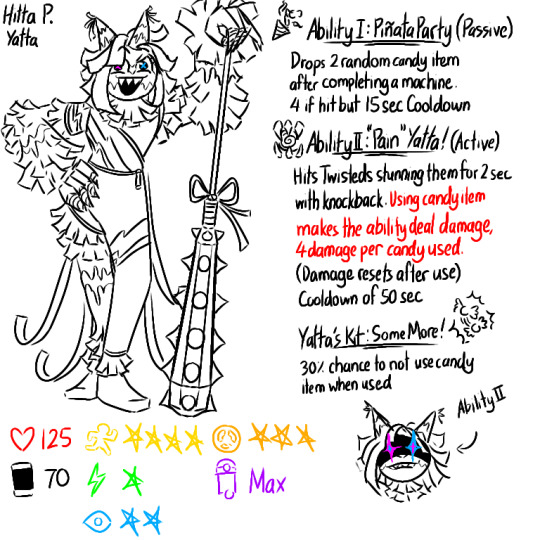 Hitta P.
Yatta
Ability I: Piñata Party (Passive)
Drops 2 random candy item
after completing a machine.
4 if hit but 15 sec Cooldown
Ability II: "Pain" Yatta! (Active)
Hits Twisteds stunning them for 2 sec
with knockback. Using candy item
makes the ability deal damage,
4 damage per candy used.
(Damage resets after use)
Cooldown of 50 sec
Yatta's Kit: Some More!
30% chance to not use candy
item when used
Ability II
125
70
Max